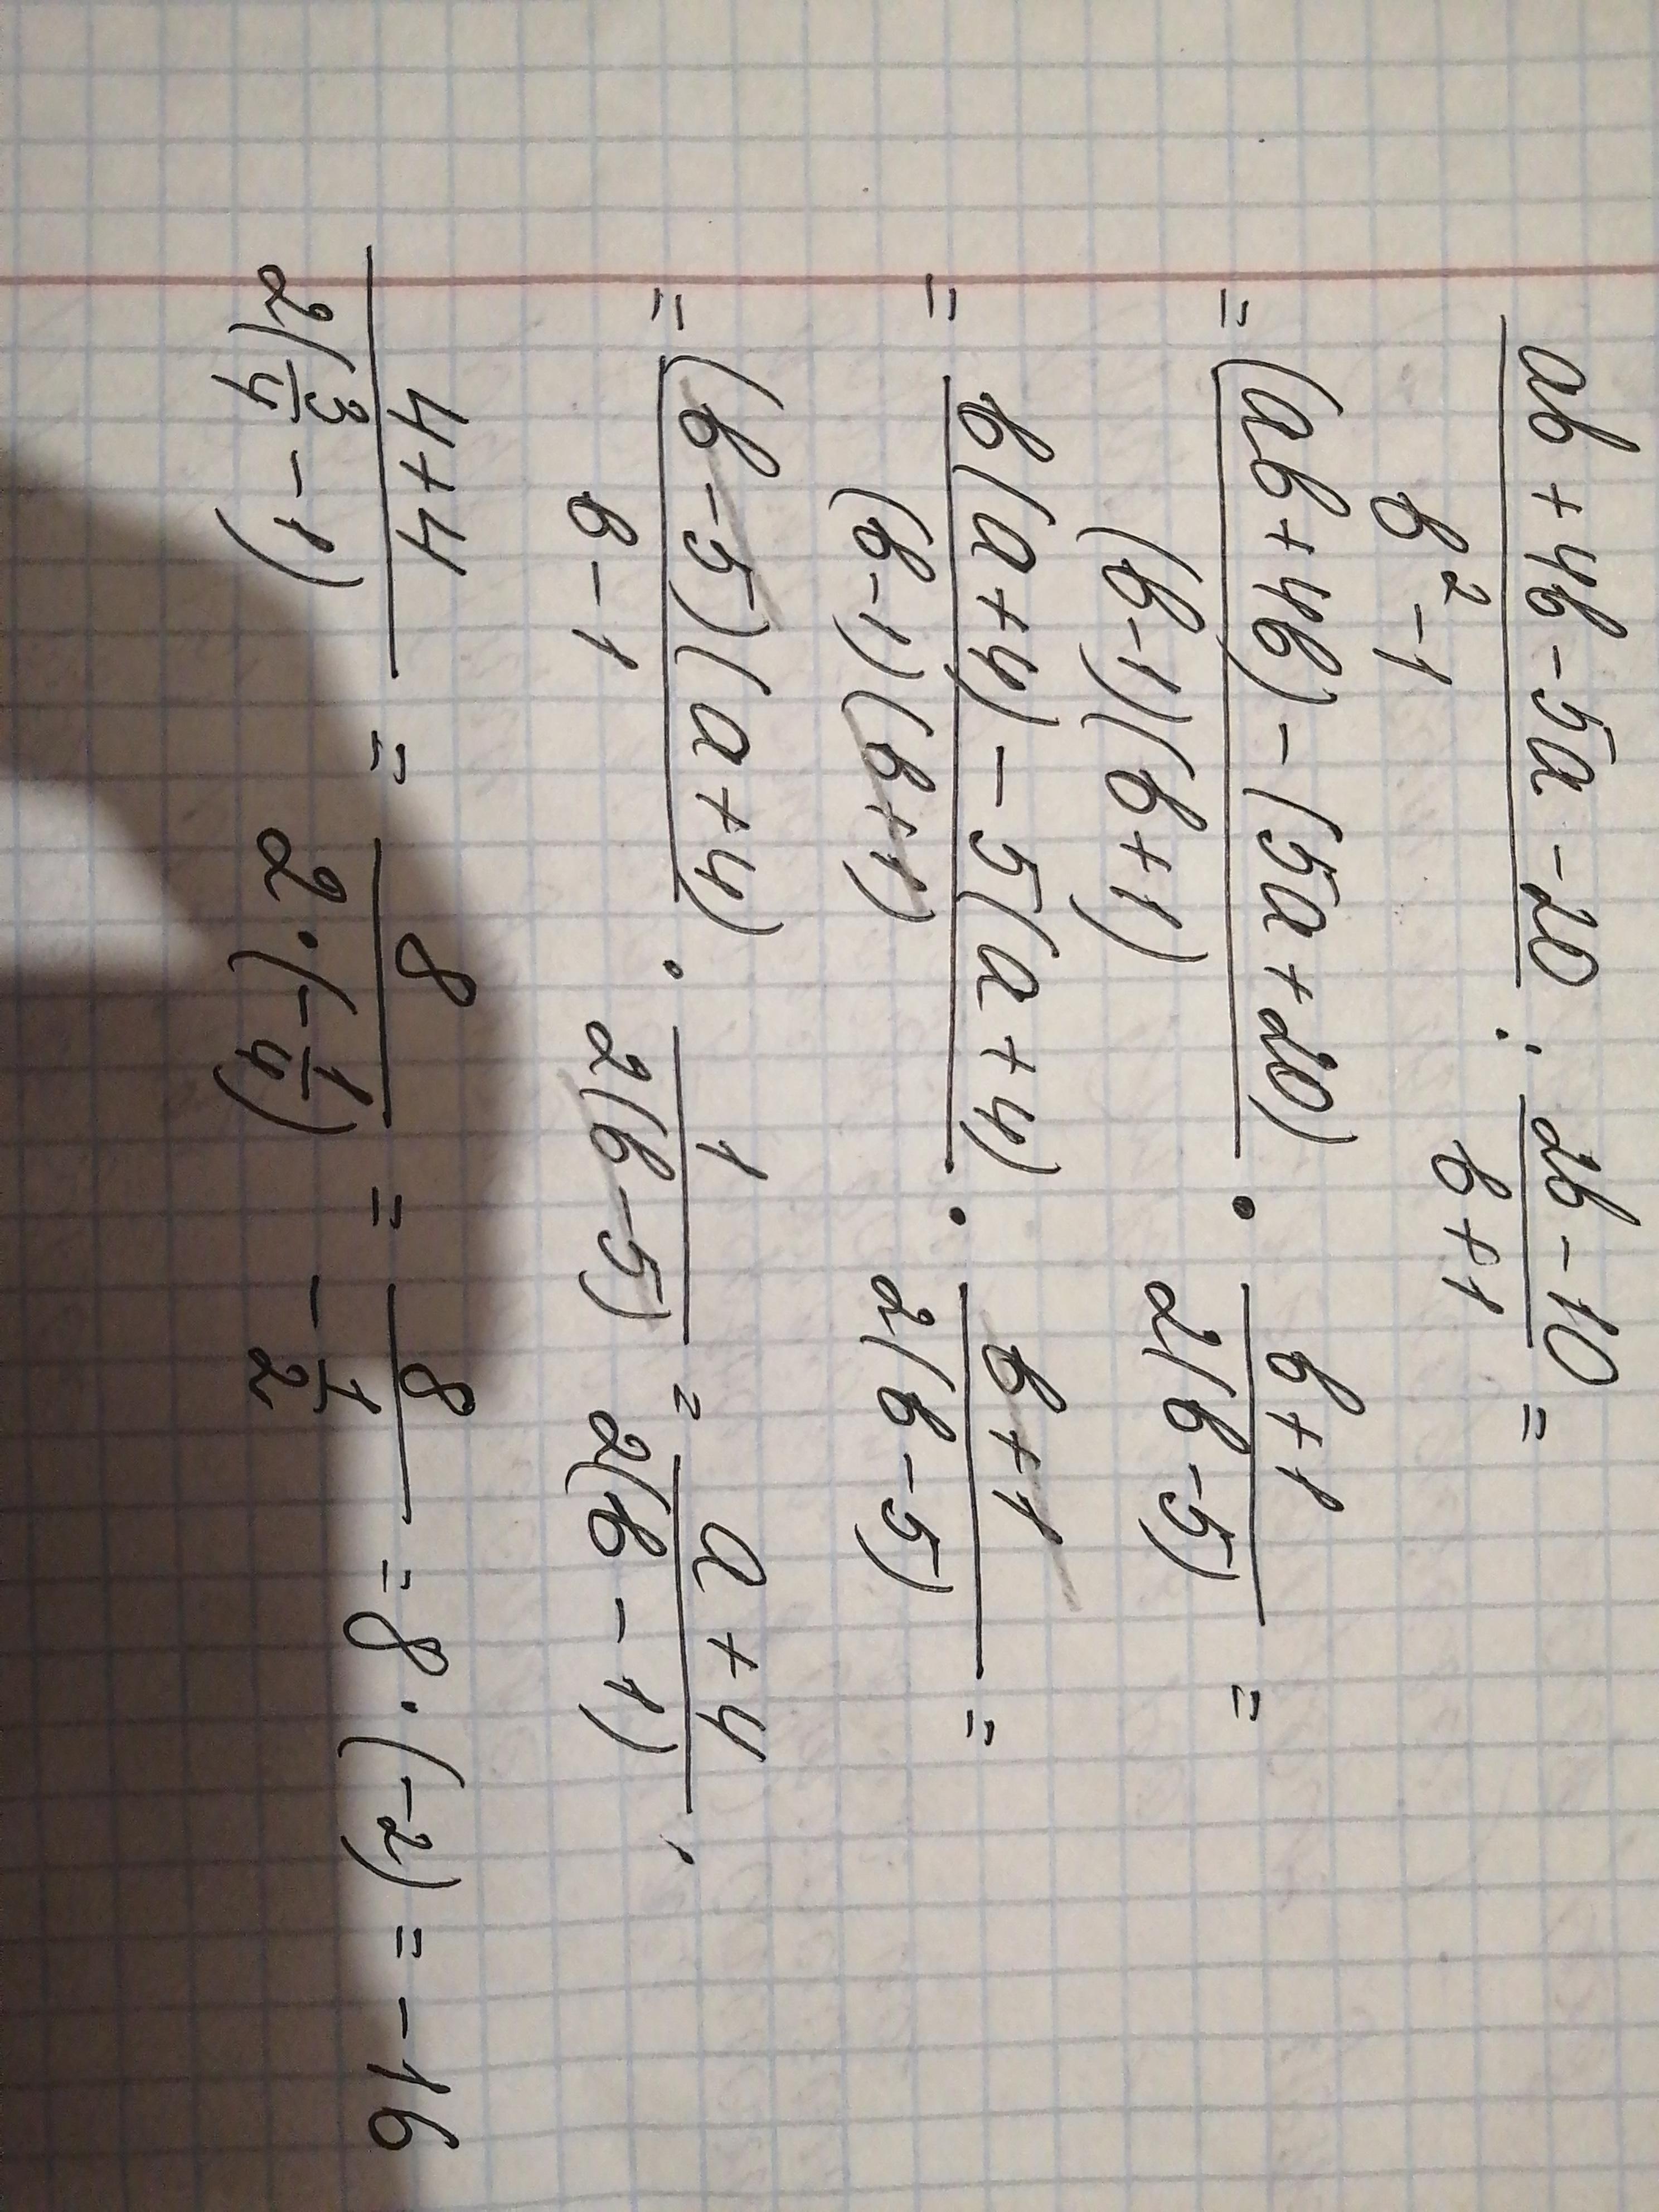 (ab + 4b - 5a - 20)/(b² - 1) : (2b - 10)/(b + 1) =
= ((ab + 4b) - (5a + 20))/((b - 1)(b + 1)) · (b + 1)/(2(b - 5)) =
= (b(a + 4) - 5(a + 4))/((b - 1)(b + 1)) · (b + 1)/(2(b - 5)) =
= ((b - 5)(a + 4))/(b - 1) · 1/(2(b - 5)) = (a + 4)/(2(b - 1)),
(4 + 4)/(2(3/4 - 1)) = 8/(2 · (-1/4)) = 8/(-1/2) = 8 · (-2) = -16